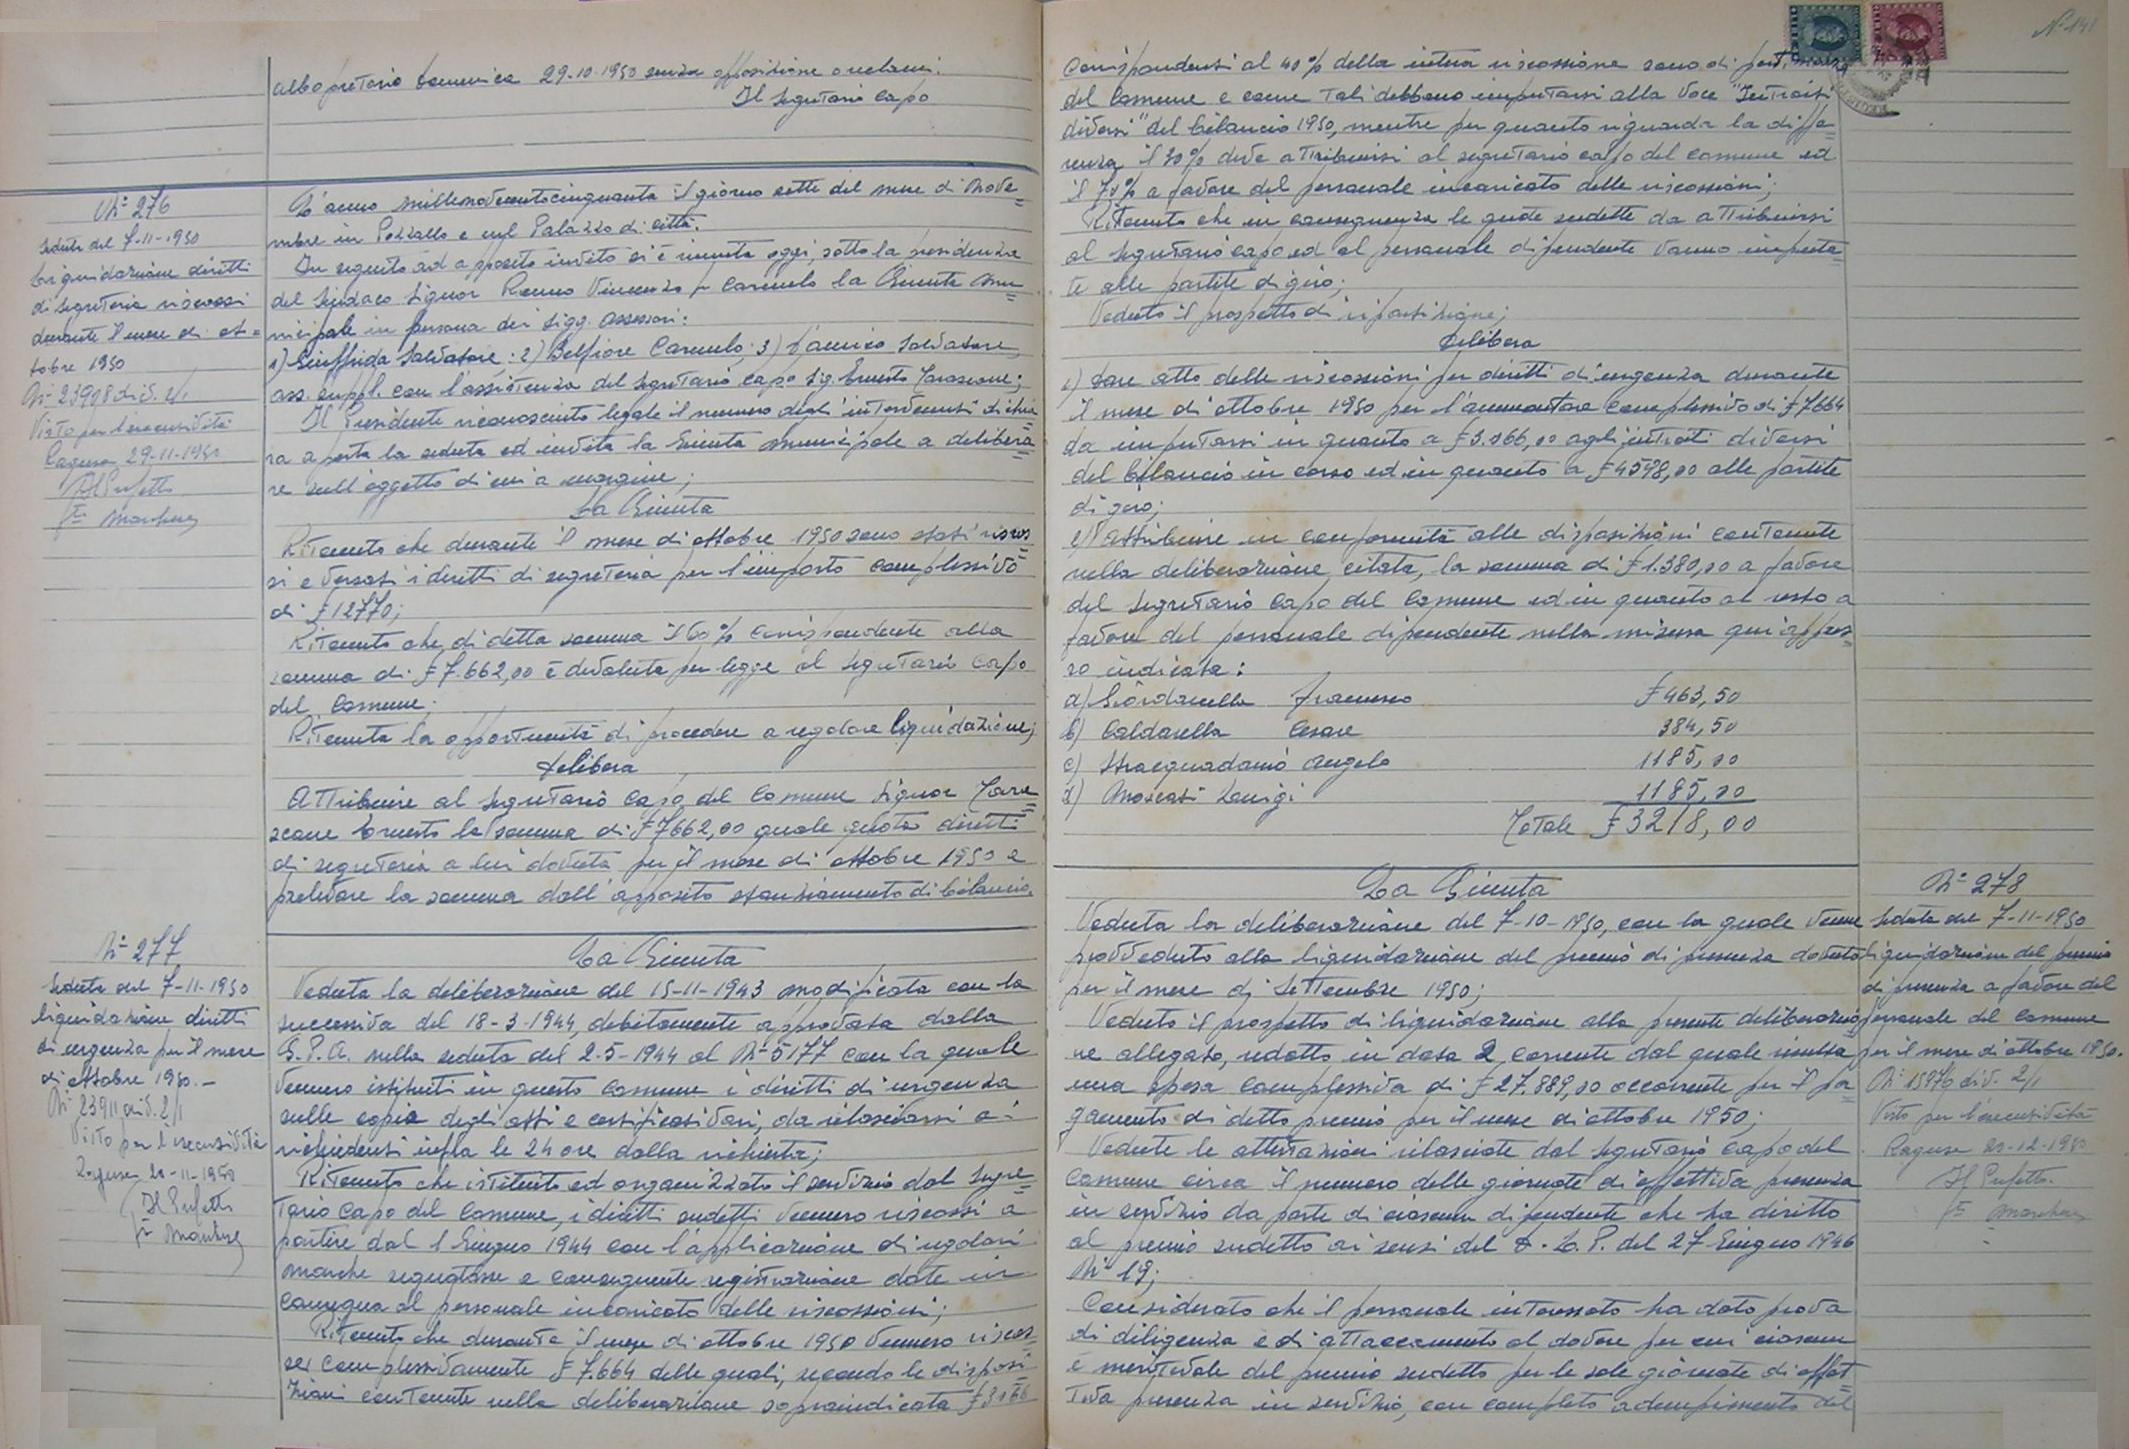 albo pretorio domenica 29-10-1950 senza opposizione o reclami.
Il Segretario Capo
N° 276
Seduta del 7-11-1950
Liquidazione diritti
di Segreteria riscossi
durante il mese di ot=
tobre 1950
N° 23998 di S. 2/1
Visto per l'esecutività
Ragusa 29-11-1950
Il Prefetto
L'anno millenovecentocinquanta il giorno sette del mese di Nove=
mbre in Pozzallo e nel Palazzo di città.
In seguito ad apposito invito si è riunita oggi, sotto la presidenza
del Sindaco Signor Vincenzo fu Carmelo la Giunta Mu=
nicipale in persona dei Sigg. Assessori:
1) Giuffrida Salvatore; 2) Belfiore Carmelo; 3) Salvatore,
ass. suppl. con l'assistenza del Segretario capo Sig. Ernesto Tarascone;
Il Presidente riconosciuto legale il numero degli intervenuti dichia=
ra aperta la seduta ed invita la Giunta Municipale a delibera=
re sull'oggetto di cui a margine;
La Giunta
Ritenuto che durante il mese di ottobre 1950 sono stati riscos=
si e versati i diritti di segreteria per l'importo complessivo
di £ 12770;
Ritenuto che di detta somma il 60% corrispondente alla
somma di £ 7.662,00 è devoluta per legge al Segretario Capo
del Comune;
Ritenuta la opportunità di procedere a regolare liquidazione;
delibera
Attribuire al Segretario Capo del Comune Signor Tara=
scone Ernesto la somma di £ 7662,00 quale quota diritti
di segreteria a lui dovuta per il mese di ottobre 1950 e
prelevare la somma dall'apposito stanziamento di bilancio.
N° 277
Seduta del 7-11-1950
liquidazione diritti
di urgenza per il mese
di ottobre 1950.-
N° 23911 di S. 2/1
Visto per l'esecutività
Ragusa 20-11-1950
Il Prefetto
La Giunta
Veduta la deliberazione del 15-11-1943 modificata con la
successiva del 18-3-1944, debitamente approvata dalla
G.P.A. nella seduta del 2-5-1944 al N° 5177 con la quale
vennero istituiti in questo Comune i diritti di urgenza
sulle copie degli atti e certificati vari, da rilasciarsi ai
richiedenti infra le 24 ore dalla richiesta;
Ritenuto che istituito ed organizzato il servizio dal Segre=
tario Capo del Comune, i diritti sudetti vennero riscossi a
partire dal 1 Giugno 1944 con l'applicazione di regolari
marche segnatasse e conseguente registrazione date in
consegna al personale incaricato delle riscossioni;
Ritenuto che durante il mese di ottobre 1950 vennero riscos=
si complessivamente £ 7.664 delle quali, secondo le disposi=
zioni contenute nella deliberazione sopraindicata £ 3066
N° 141
corrispondenti al 40% della intera riscossione sono di
del Comune e come tali debbono imputarsi alla voce "Introiti
diversi" del bilancio 1950, mentre per quanto riguarda la diffe=
renza il 30% deve attribuirsi al segretario capo del Comune ed
il 70% a favore del personale incaricato delle riscossioni;
Ritenuto che in conseguenza le quote sudette da attribuirsi
al segretario capo ed al personale dipendente vanno imputa=
te alle partite di giro;
Veduto il prospetto di ripartizione;
delibera
1) dare atto delle riscossioni per diritti di urgenza durante
il mese di ottobre 1950 per l'ammontare complessivo di £ 7664
da imputarsi in quanto a £ 3.066,00 agli introiti diversi
del bilancio in corso ed in quanto a £ 4598,00 alle partite
di giro;
2) Attribuire in conformità alle disposizioni contenute
nella deliberazione citata, la somma di £ 1.380,00 a favore
del Segretario Capo del Comune ed in quanto al resto a
favore del personale dipendente nella misura qui appres=
so indicata:
a) Giordanella Francesco £ 463,50
b) Caldarella Cesare 384,50
c) Stracquadanio Angelo 1185,00
d) Moscati Luigi 1185,00
Totale £ 3218,00
La Giunta
Veduta la deliberazione del 7-10-1950, con la quale venne
provveduto alla liquidazione del premio di presenza dovuto
per il mese di Settembre 1950;
Veduto il prospetto di liquidazione alla presente deliberazio
ne allegato, redatto in data 2 corrente dal quale risulta
una spesa complessiva di £ 27.889,00 occorrente per il pa=
gamento di detto premio per il mese di ottobre 1950;
Vedute le attestazioni rilasciate dal Segretario Capo del
Comune circa il numero delle giornate di effettiva presenza
in servizio da parte di ciascun dipendente che ha diritto
al premio sudetto ai sensi del D.L.P. del 27 Giugno 1946
N° 19;
Considerato che il personale interessato ha dato prova
di diligenza e di attaccamento al dovere per cui ciascuno
è meritevole del premio sudetto per le sole giornate di effet=
tiva presenza in servizio, con completo adempimento del
N° 278
Seduta del 7-11-1950
liquidazione del premio
di presenza a favore del
personale del Comune
per il mese di ottobre 1950.
N° 15976 di S. 2/1
Visto per l'esecutività
Ragusa 20-12-1950
Il Prefetto